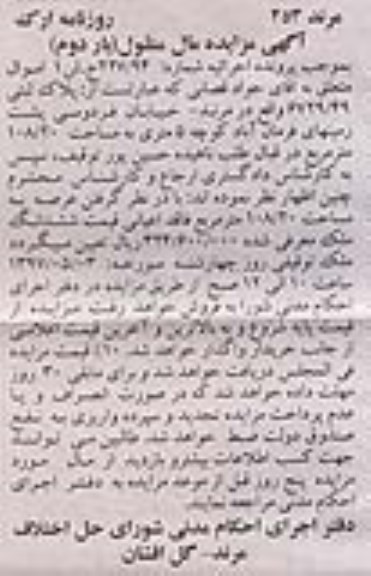 مرند ۲۵۳ روزنامه ارک
آگهی مزایده مال منقول(بار دوم)
بموجب پرونده اجرائیه شماره: ۲۳۷/۹۴ح.ش۱ اموال
متعلق به آقای جواد فضلی که عبارتست از: پلاک ثبتی
۶۷۲۹/۴۹ واقع در مرند- خیابان فردوسی پشت
زمینهای فرمان آباد کوچه ۵ متری به مساحت ۱۰۸/۲۰
مترمربع در قبال طلب ناهیده حسین پور توقیف، سپس
به کارشناس دادگستری ارجاع و کارشناس محترم
چنین اظهار نظر نموده اند: با در نظر گرفتن عرصه به
مساحت ۱۰۸/۲۰ مترمربع فاقد اعیانی قیمت ششدانگ
ملک معرفی شده ۳۲۴/۶۰۰/۰۰۰ ریال تعیین میگردد
ملک توقیفی روز چهارشنبه مورخه: ۱۳۹۷/۰۵/۰۳
ساعت ۱۰ الی ۱۲ صبح از طریق مزایده در دفتر اجرای
احکام مدنی شورا به فروش خواهد رفت مزایده از
قیمت پایه شروع و به بالاترین و آخرین قیمت اعلامی
از جانب خریدار واگذار خواهد شد. ۱۰٪ قیمت مزایده
فی المجلس دریافت خواهد شد و برای مابقی ۳۰ روز
مهلت داده خواهد شد که در صورت انصراف و یا
عدم پرداخت مزایده تجدید و سپرده واریزی به نفع
صندوق دولت ضبط خواهد شد. طالبین می توانند
جهت کسب اطلاعات بیشتر و بازدید از مال مورد
مزایده پنج روز قبل از موعد مزایده به دفتر اجرای
احکام مدنی مراجعه نمایند.
دفتر اجرای احکام مدنی شورای حل اختلاف
مرند- گل افشان